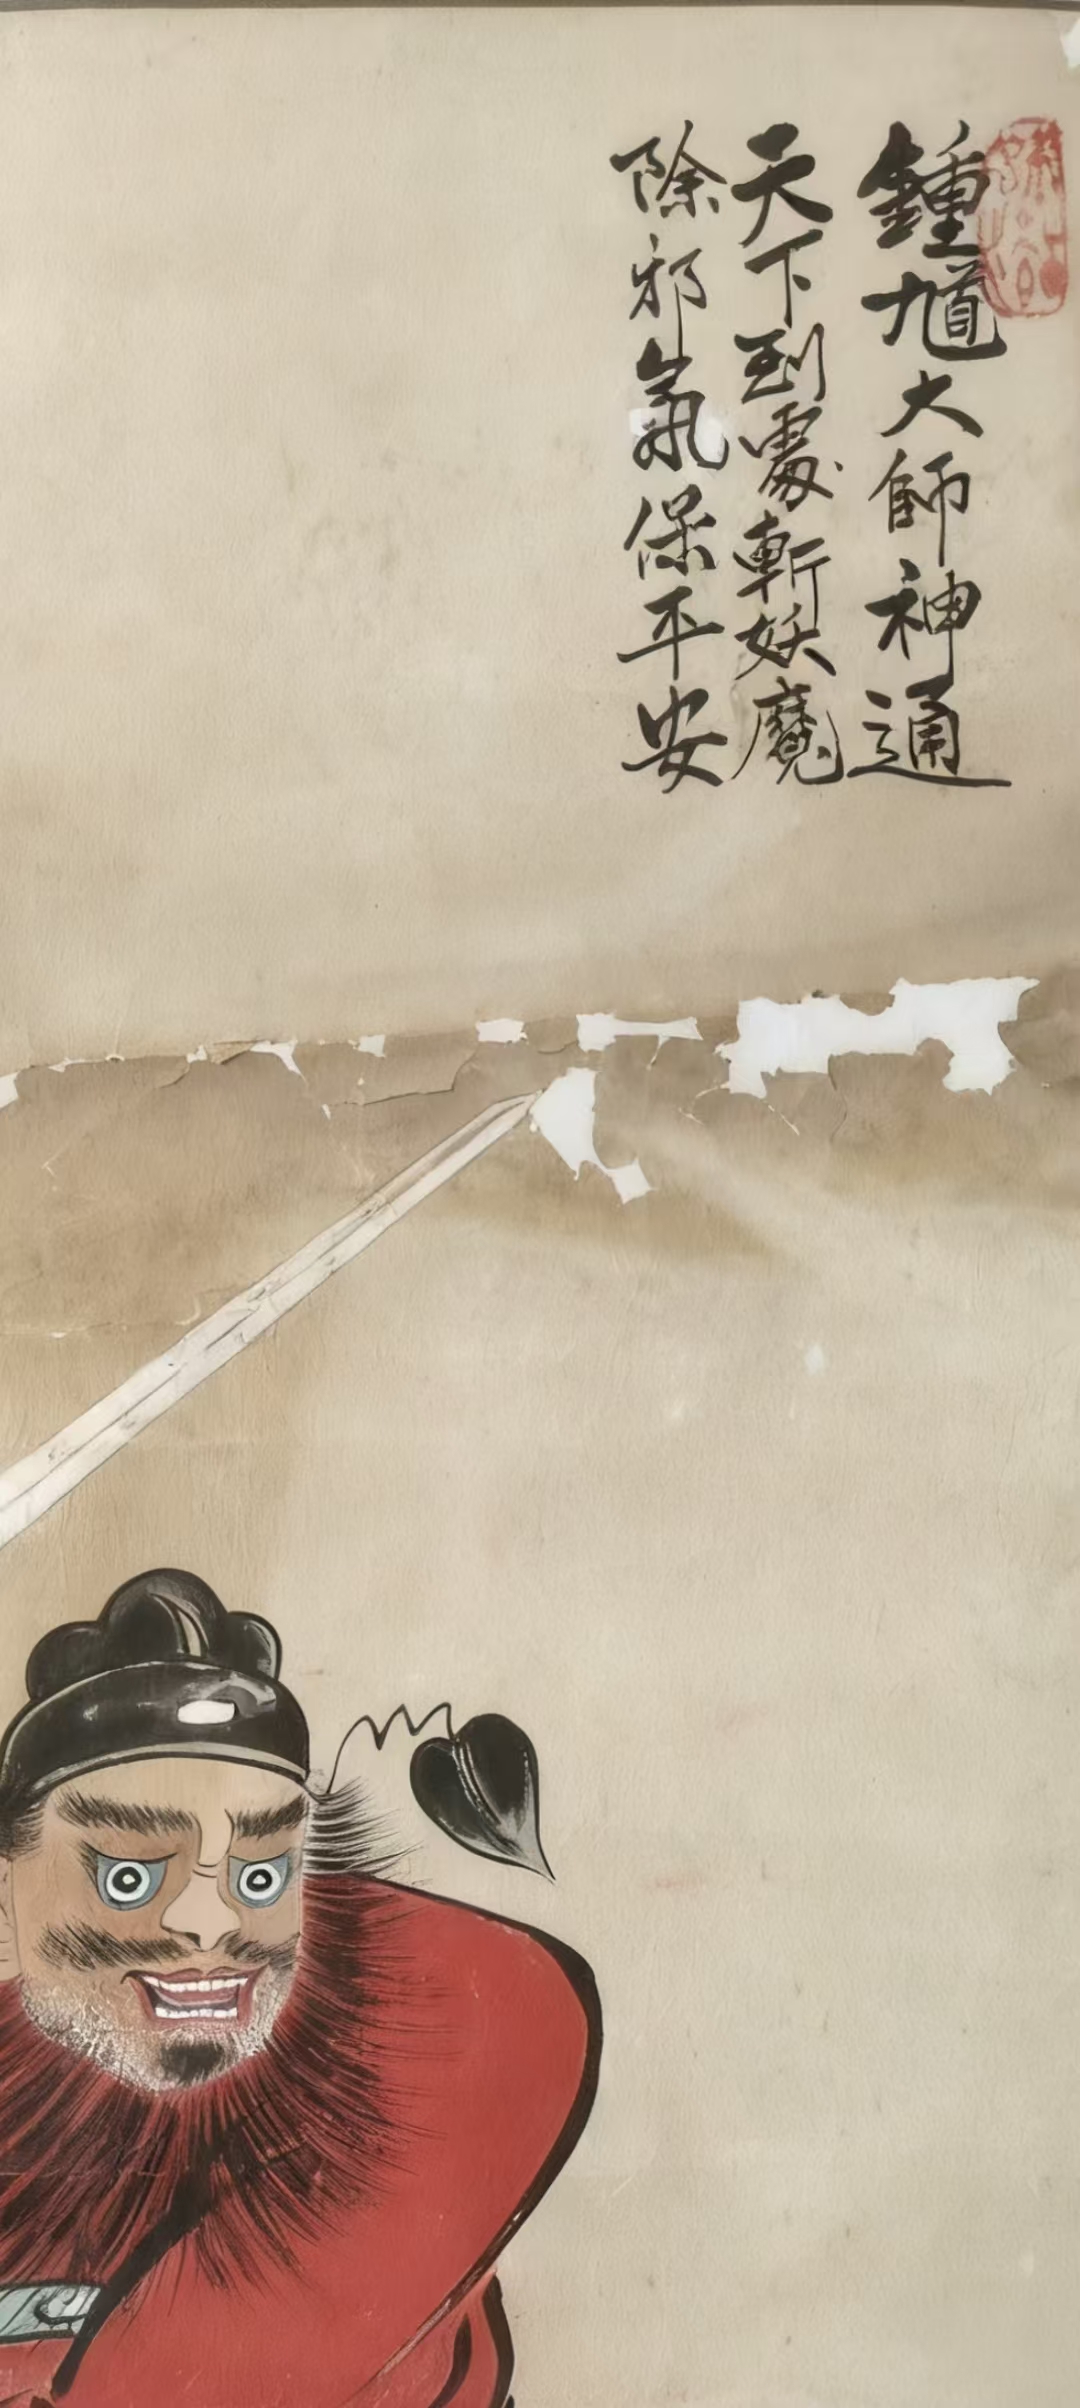 鍾馗大師神通
天下到處斬妖魔
除邪氣保平安